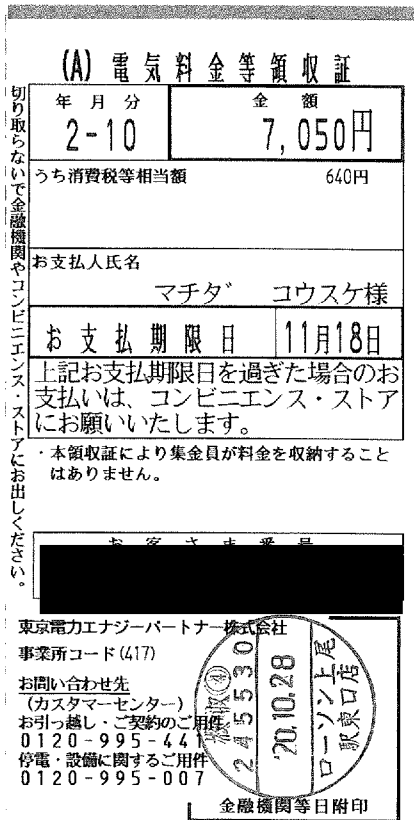 (A) 電気料金等領収証
切り取らないで金融機関やコンビニエンス・ストアにお出しください。
年月分
2-10
金額
7,050円
うち消費税等相当額 640円
お支払人氏名
マチダ コウスケ様
お支払期限日 11月18日
上記お支払期限日を過ぎた場合のお
支払いは、コンビニエンス・ストア
にお願いいたします。
・本領収証により集金員が料金を収納すること
はありません。
お客さま番号
東京電力エナジーパートナー株式会社
事業所コード(417)
お問い合わせ先
(カスタマーセンター)
お引っ越し・ご契約のご用件
0120-995-441
停電・設備に関するご用件
0120-995-007
245530
'20.10.28
ローソン上尾
駅東口店
金融機関等日附印